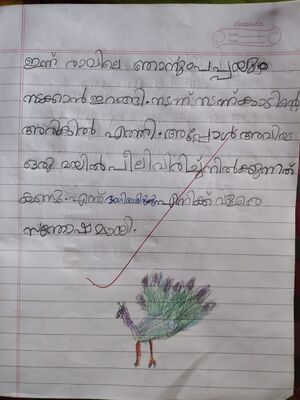 classmate
ഇന്ന് രാവിലെ ഞാനും പപ്പയും
നടക്കാൻ ഇറങ്ങി. നടന്ന് നടന്ന് കാടിന്റെ
അരികിൽ എത്തി. അപ്പോൾ അവിടെ
ഒരു മയിൽ പീലിവിരിച്ച് നിൽക്കുന്നത്
കണ്ടു. എന്ത് എനിക്ക് വളരെ
സന്തോഷമായി.